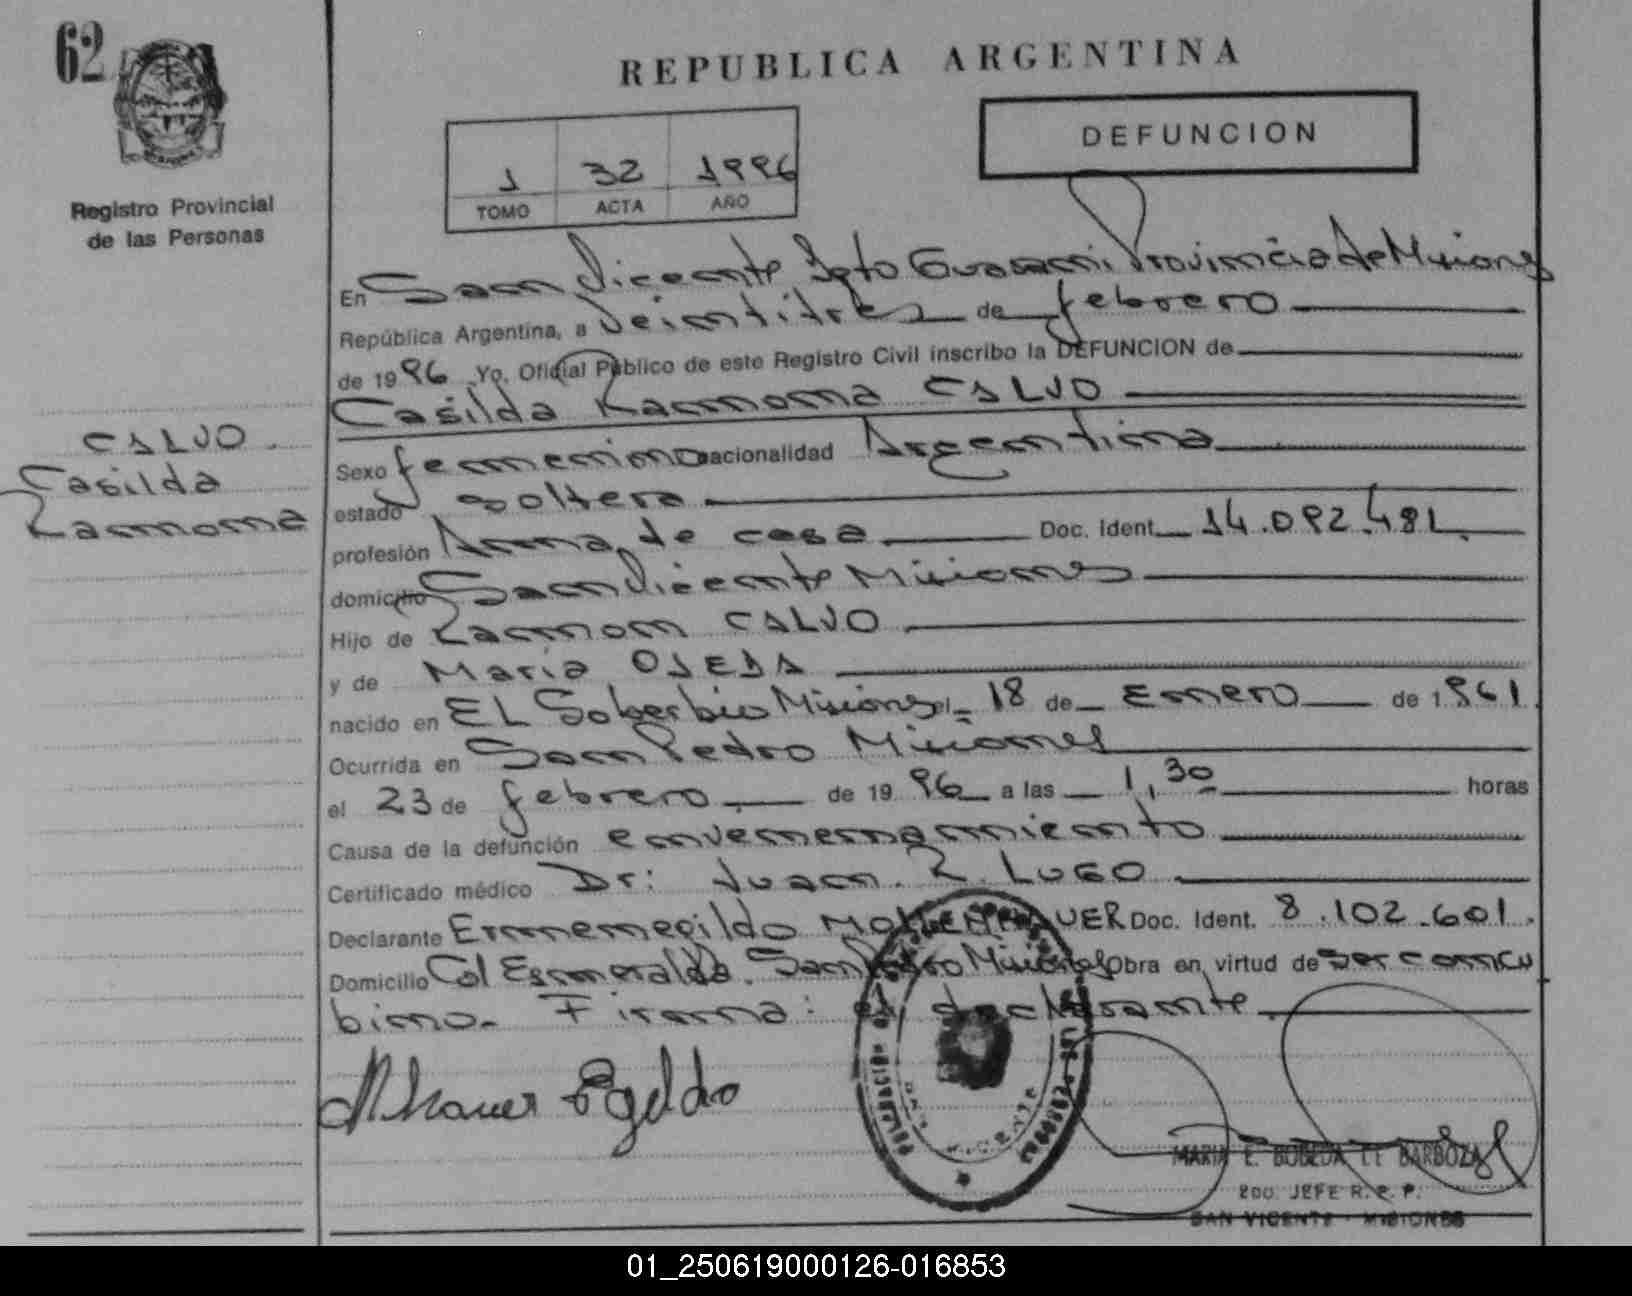 62
REPUBLICA ARGENTINA
DEFUNCION
1 32 1996
TOMO ACTA AÑO
Registro Provincial
de las Personas
En San Vicente Dpto Guarani Provincia de Misiones
República Argentina, a Veintitres de febrero
de 1996 Yo, Oficial Público de este Registro Civil inscribo la DEFUNCION de
Casilda Ramona CALVO
CALVO
Casilda
Ramona
Sexo femenino nacionalidad Argentina
estado soltera
profesión Ama de casa Doc. Ident. 14.092.481
domicilio San Vicente Misiones
Hijo de Ramon CALVO
y de Maria OJEDA
nacido en EL Soberbio Misiones el 18 de Enero de 1961
Ocurrida en San Pedro Misiones
el 23 de febrero de 1996 a las 1,30 horas
Causa de la defunción envenenamiento
Certificado médico Dr: Juan R. LUGO
Declarante Ermenegildo Doc. Ident. 8.102.601.
Domicilio Col Esmeralda. San Pedro Misiones Obra en virtud de ser concu
bino. Firma: el declarante
MARIA E. BOBEDA DE BARBOZA
2DO. JEFE R. P. P.
SAN VICENTE - MISIONES
01_250619000126-016853